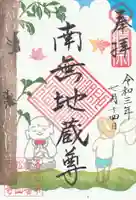 奉拝
令和三年
七月十四日
南無地蔵尊